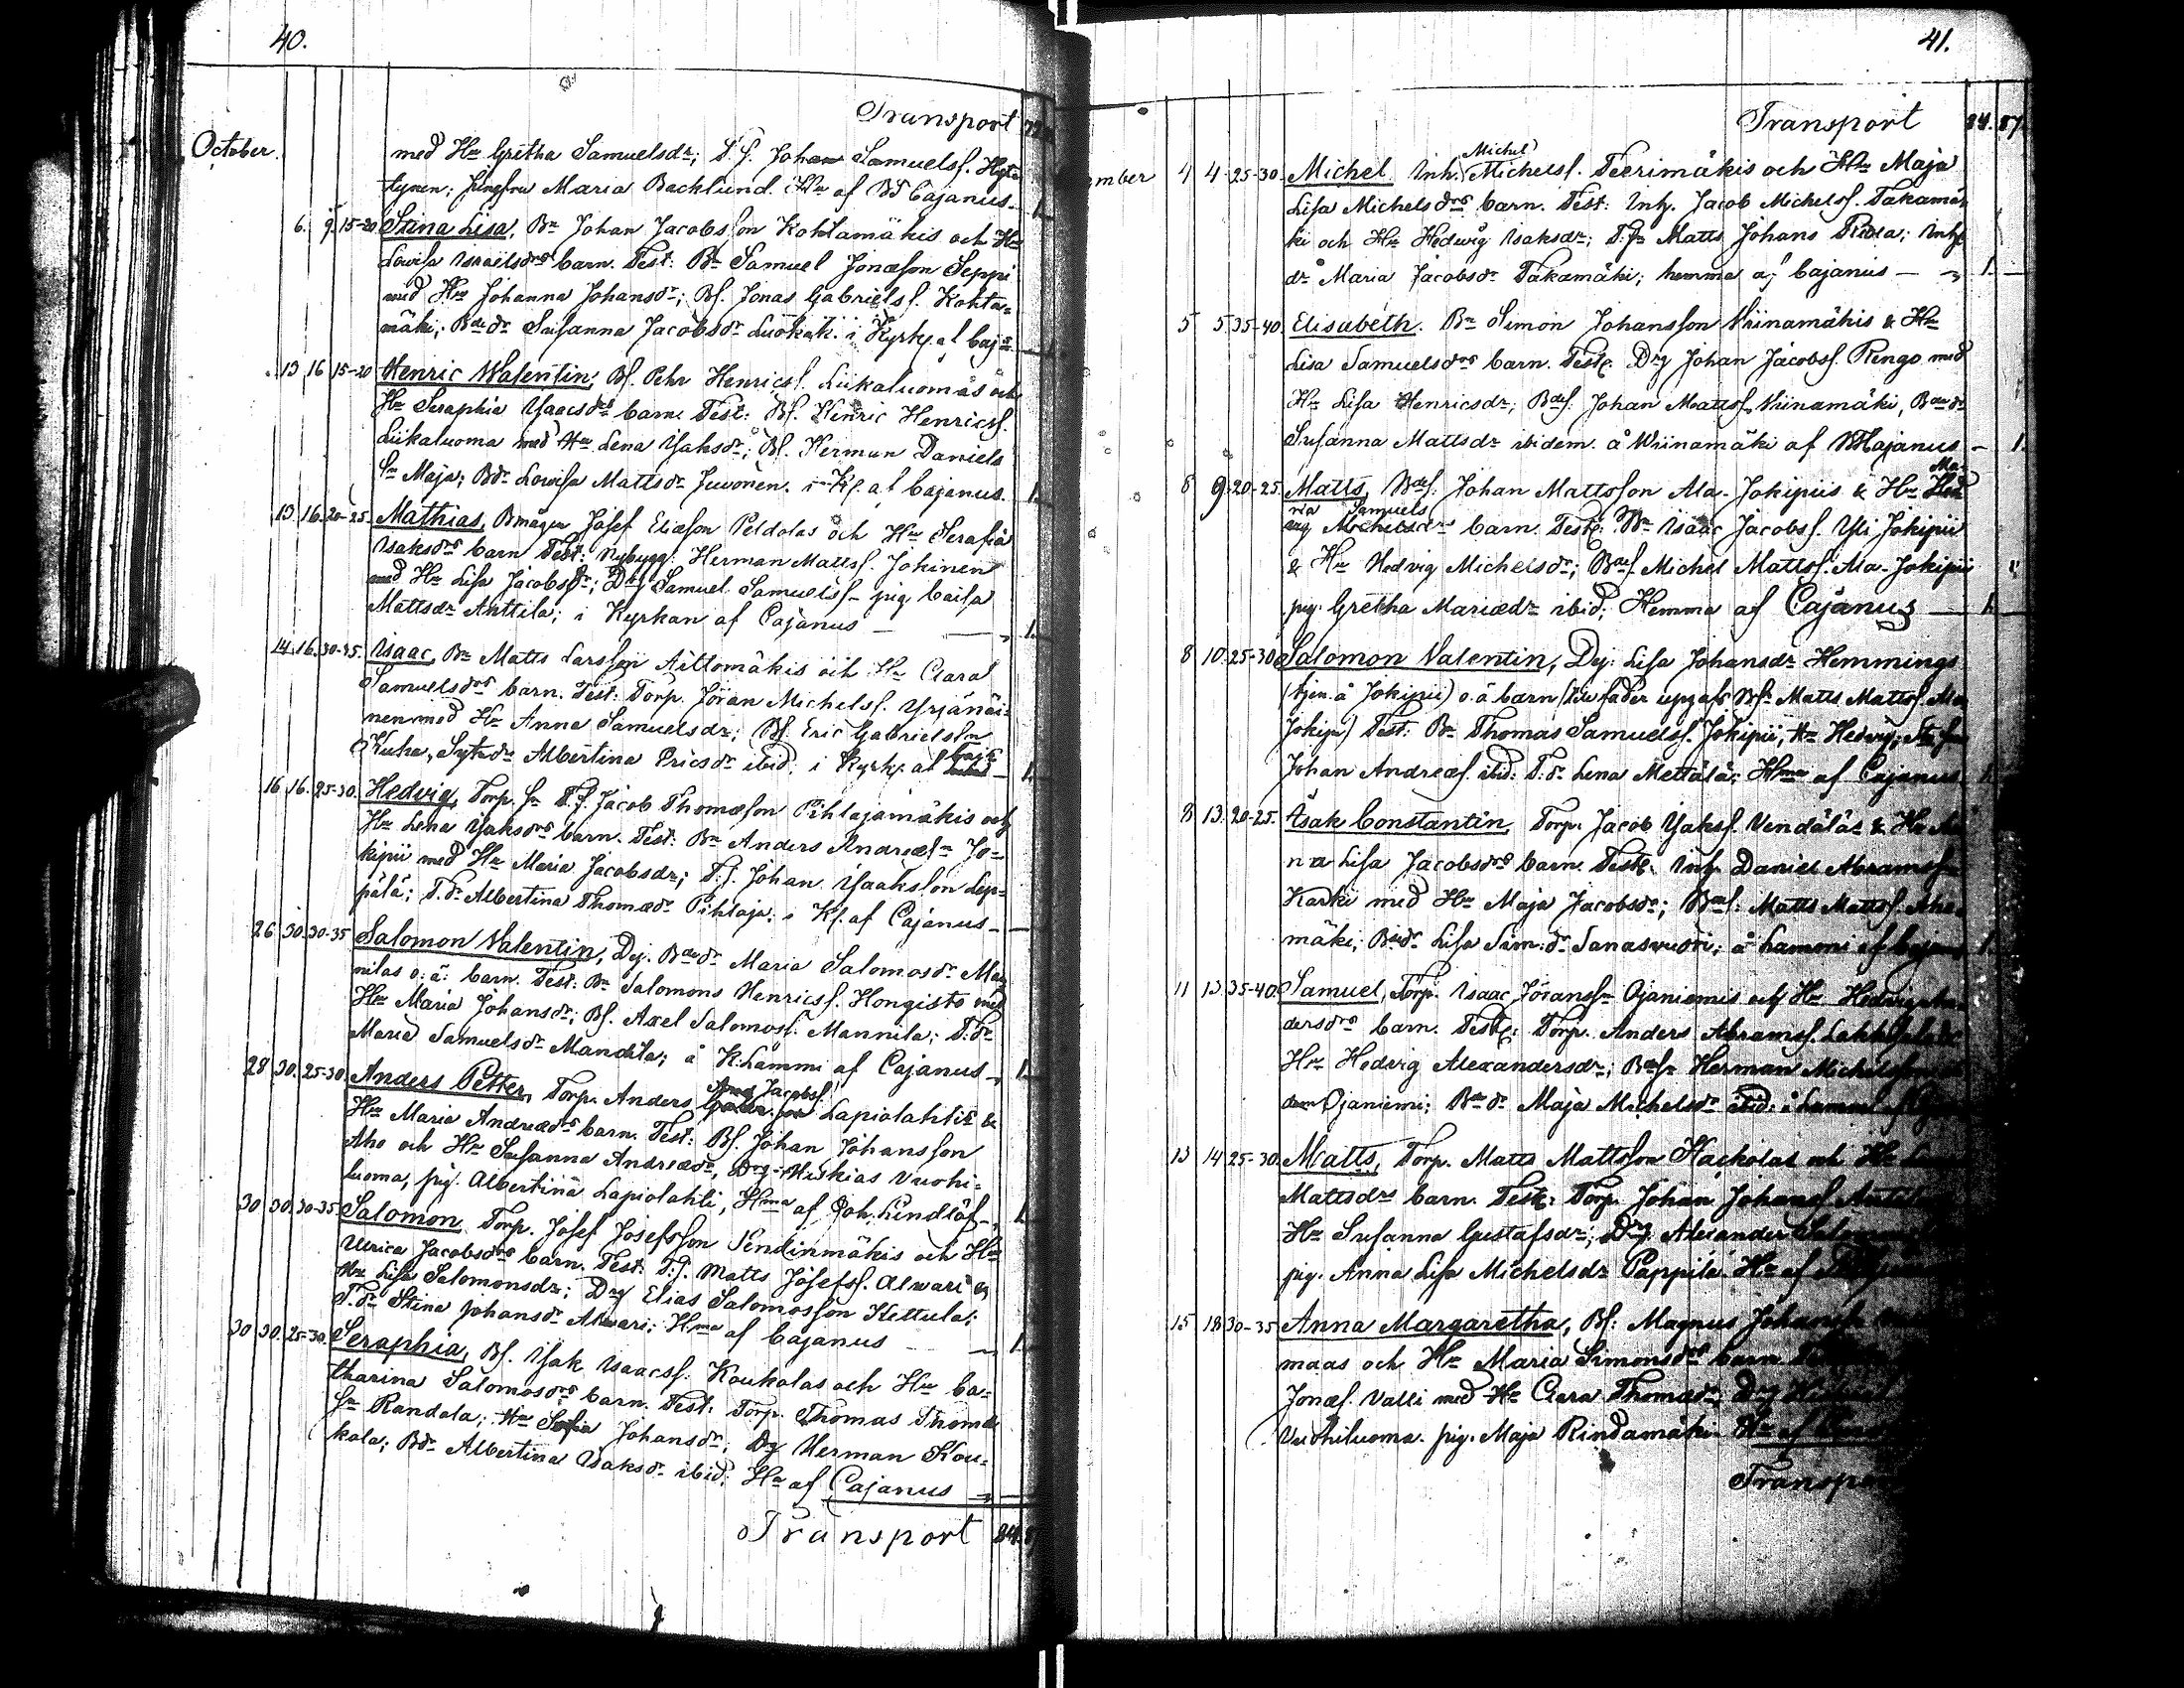 40.
Transport
October.
med Hu Gretha Samuelsdr; T.f. Johan Samuelsf. Hyte
tynen; Jungfru Maria Backlund. Hm af Cajanus
6. 9. 15-20 Stina Lisa, Bn Johan Jacobsson Kohtamäkis och Hu
Lovisa Israelsdrs barn. Test: Bn Samuel Jonæson Seppi
med Hu Johanna Johansdr; Bf. Jonas Gabrielsf. Kohta-
mäki; Bdedr Susanna Jacobsdr Luokak. i Kyrk. af Caj
13 16 15-20 Henric Valentin, Bf. Pehr Henricsf. Liikaluomas och
Hu Seraphia Isaacsdrs barn. Test: Bf. Henric Henricsf.
Liikaluoma med Hu Lena Isaksdr; Bf. Herman Daniels
Sn Maja; Bdr Lovisa Mattsdr Juvonen. i Kf. af Cajanus. 1.
13. 16. 20-25. Mathias, Bmågen Josef Eliæson Peldolas och Hu Serafia
Isaksdrs barn Test: Nybygg. Herman Mattsf. Jokinen
med Hu Lisa Jacobsdr; Drg Samuel Samuelsf. pig. Caisa
Mattsdr Anttila; i Kyrkan af Cajanus 1.
14. 16. 30-35. Isaac, Bn Matts Larsson Aittomäkis och Hu Clara
Samuelsdrs barn. Test: Torp. Jöran Michelsf. Yrjänäi-
nen med Hu Anna Samuelsdr; Bf. Eric Gabrielsson
Kuha, Sytn dr Albertina Ericsdr ibid; i Kyrk. af Caj. 1.
16 16. 25-30. Hedvig, Torp. Sn T.f. Jacob Thomæson Pihlajamäkis och
Hu Lena Isaksdrs barn. Test: Bn Anders Andreæsn Jo-
kipii med Hu Maria Jacobsdr; T.f. Johan Isaaksson Lep-
pälä; T.dr Albertina Thomædr Pihlaja. i Kf. af Cajanus
26 30. 30-35 Salomon Valentin, Dej. Bdedr Maria Salomosdr Man
nilas o: ä: barn. Test: Bn Salomons Henricsf. Hongisto med
Hu Maria Johansdr; Bf. Axel Salomosf. Mannila; T.dr
Maria Samuelsdr Mandila; å K:Lammi af Cajanus 1.
28 30. 25-30 Anders Petter, Torp. Anders Jacobsf. Lapiolahtis &
Hu Maria Andreædrs barn. Test: Bf. Johan Johansson
Aho och Hu Susanna Andreædr, Drg Hiskias Vuohi-
luoma, pig. Albertina Lapiolahti, Hma af Joh. Lindlöf 1.
30 30. 30-35 Salomon Torp. Josef Josefsson Pendinmäkis och Hu
Ulrica Jacobsdrs barn. Test: T.f. Matts Josefsf. Alwari &
Hu Lisa Salomonsdr; Drg Elias Salomosson Kettula;
T.dr Stina Johansdr Alwari; Hma af Cajanus 1.
30 30. 25-30. Seraphia, Bf. Isak Isaacsf. Koukolas och Hu Ca-
tharina Salomosdrs barn. Test: Torp. Thomas Thomæ
Sn Randala; Hu Sofia Johansdr; Dg Herman Kou-
kola; Bdr Albertina Isaksdr ibid; Hm af Cajanus
Transport 84.
41.
Transport 84. 87.
mber 4 4 25-30. Michel. Inh. Michel Michelsf. Teerimäkis och Hu Maja
Lisa Michelsdrs barn. Test: Inh. Jacob Michelsf. Takamä
ki och Hu Hedvig Isaksdr; T.fn Matts Johans; Inh
dr Maria Jacobsdr Takamäki; hemma af Cajanus 1.
5 5. 35-40. Elisabeth. Bn Simon Johansson Wiinamäkis & Hu
Lisa Samuelsdrs barn. Test. Drg Johan Jacobsf. Rengo med
Hu Lisa Henricsdr; Bdsf. Johan Mattsf. Wiinamäki, Bdedr
Susanna Mattsdr ibidem. å Wiinamäki af Cajanus 1.
8 9. 20-25. Matts, Bdsf. Johan Mattsson Ala-Jokipiis & Hu Ma-
ria Samuels barn. Test. Bn Isaac Jacobsf. Yli Jokipii
& Hu Hedvig Michelsdr; Bdsf. Michel Mattsf. Ala-Jokipii
pig. Gretha Mariædr ibid; Hemma af Cajanus 1.
8 10. 25-30 Salomon Valentin, Dej. Lisa Johansdr Hemmings
(tjen. å Jokipii) o. ä barn (till fader uppgafs Matts Mattsf. Ala
Jokipii) Test: Bn Thomas Samuelsf. Jokipii, Hu Hedvig;
Johan Andreæsf. ibid: T.dr Lena Mettälä; Hma af Cajanus
8 13. 20-25. Isak Constantin, Torp. Jacob Isaksf. Vendäläs & Hu An
na Lisa Jacobsdrs barn. Test. Inh. Daniel Abramsson
Karki med Hu Maja Jacobsdr; Bdsf. Matts Mattsf. Aho
mäki; Bdedr Lisa Sim:dr Sanasvuori; å Lammi af Cajanus 1
11 13 35-40. Samuel, Torp. Isaac Jöransson Ojaniemis och Hu Hedvig
dersdrs barn. Test. Torp. Anders Abramsf.
Hu Hedvig Alexandersdr; Bdsn Herman Michelsson
Ojaniemi; Bdedr Maja Michelsdr ibid:
13 14 25-30. Matts, Torp. Matts Mattsson Hackolas och Hu
Mattsdrs barn. Test. Torp. Johan Johansf.
Hu Susanna Gustafsdr; Drg Alexander
pig. Anna Lisa Michelsdr Pappila. Hm af
15 18 30-35 Anna Margaretha, Bf. Magnus
maas och Hu Maria Simonsdrs barn
Jonæsf. Valli med Hu Clara Thomædr; Drg
Vuohiluoma. pig. Maja Rindamäki. Hm af
Transport